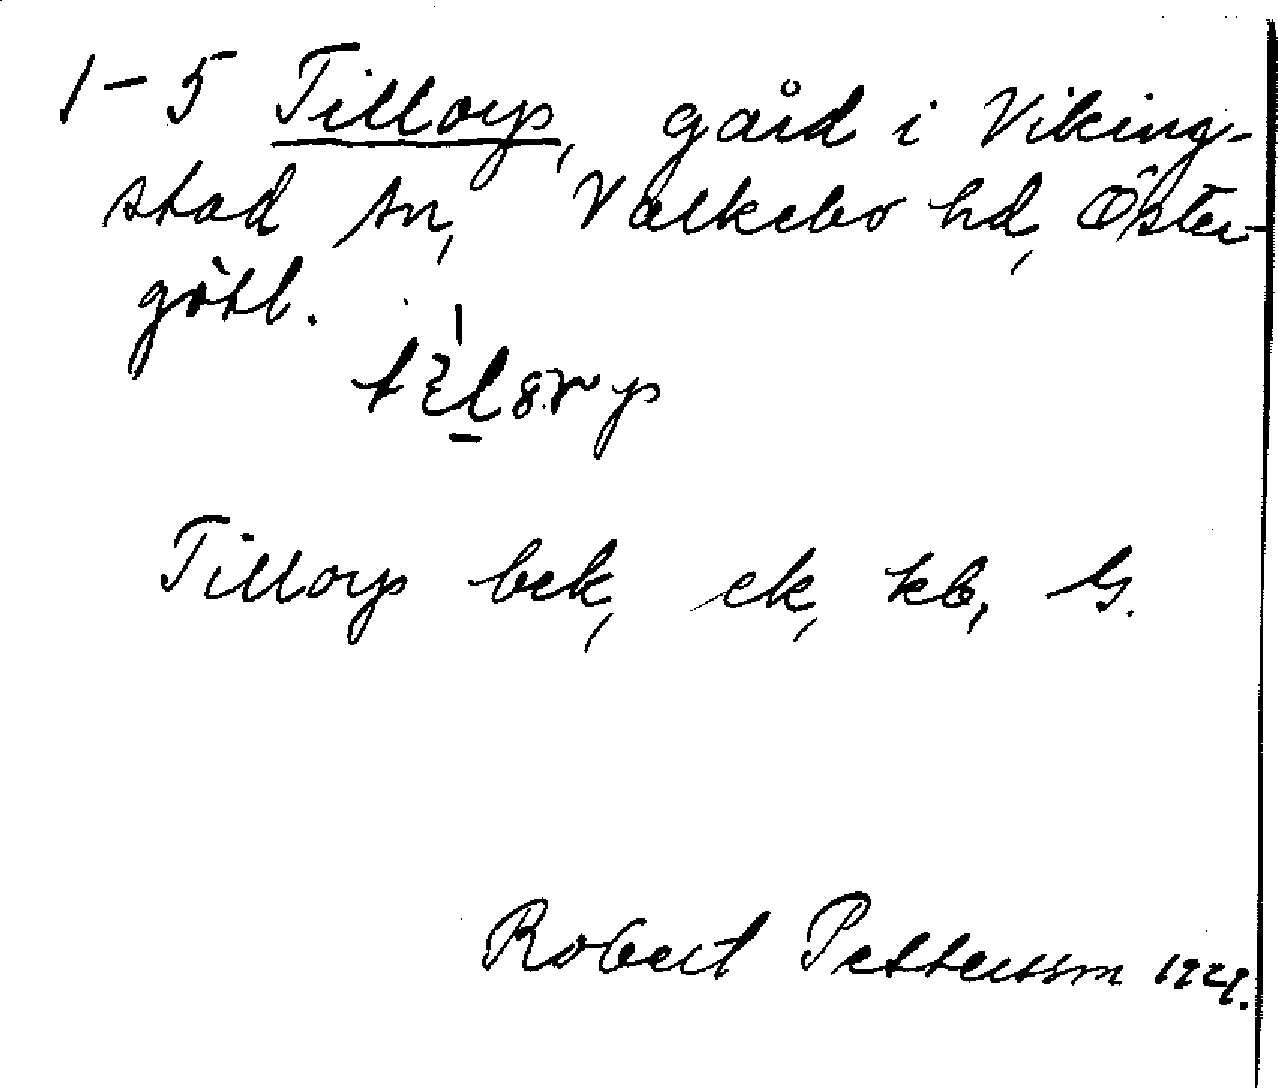 1-5 Tillorp, gård i Viking-
stad sn, Valkebo hd, Öster-
götl.
Tillorp bek, ek, kb, G.
Robert Pettersson